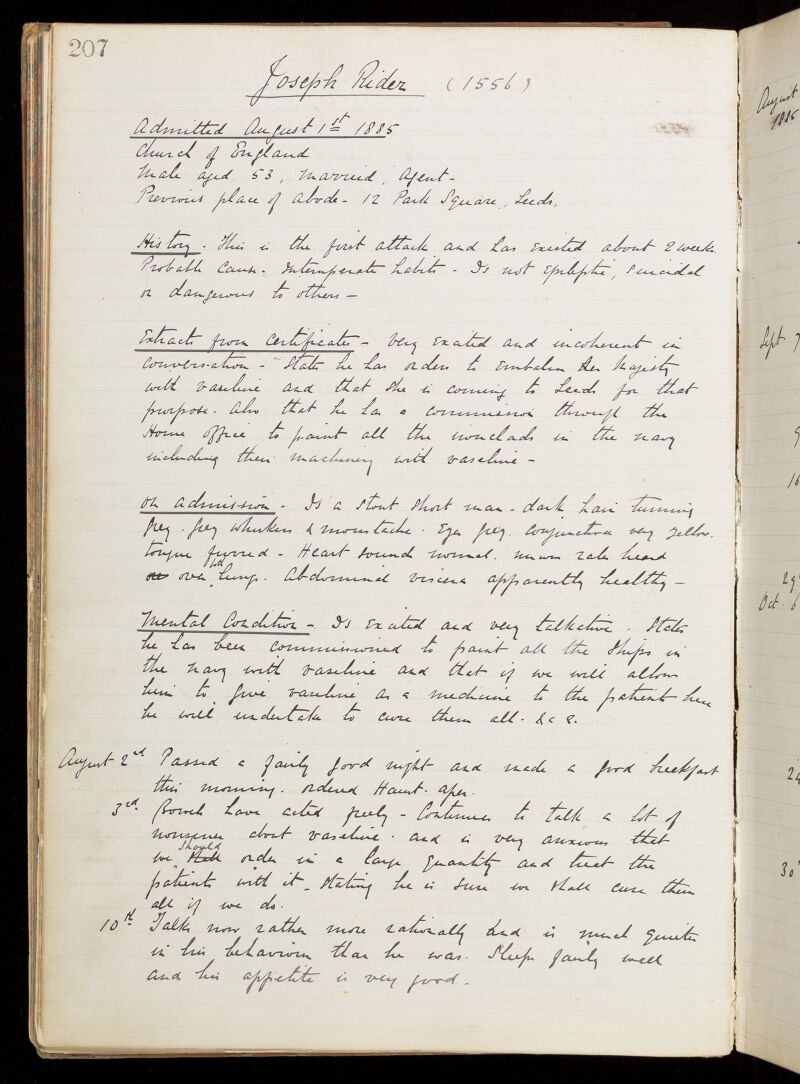 207
Joseph Rider (1556)
Admitted August 1st 1885
Church of England
Male aged 53, married, Agent-
Previous place of abode- 12 Park Square, Leeds.
History. This is the first attack and has existed about 2 weeks.
Probable Cause. Intemperate habits - Is not Epileptic, Suicidal
or dangerous to others -
Extracts from Certificates - Very excited and incoherent in
conversation - States he has orders to Embalm Her Majesty
with vaseline and that she is coming to Leeds for that
purpose. Also that he has a commission through the
Home Office to paint all the ironclads in the navy
including their machinery with vaseline -
On admission - Is a stout short man - dark hair turning
grey. grey whiskers & moustache. Eyes grey. Conjunctiva very yellow.
tongue furred - Heart sound normal. rale heard
over both lungs. Abdominal viscera apparently healthy -
Mental Condition - Is excited and very talkative. States
he has been commissioned to paint all the ships in
the navy with vaseline and that if we will allow
him to give vaseline as a medicine to the patients here
he will undertake to cure them all. &c &.
August 2nd Passed a fairly good night and made a good breakfast
this morning. ordered Haust. aper.
3rd. Bowels have acted freely - Continues to talk a lot of
nonsense about vaseline. and is very anxious that
we should order in a large quantity and treat the
patients with it - stating he is sure we shall cure them
all if we do.
10th. Talks now rather more rationally and is much quieter
in his behaviour than he was. Sleeps fairly well
and his appetite is very good -
August
1885
Sept 7
9
16
29
Oct. 6
24
30